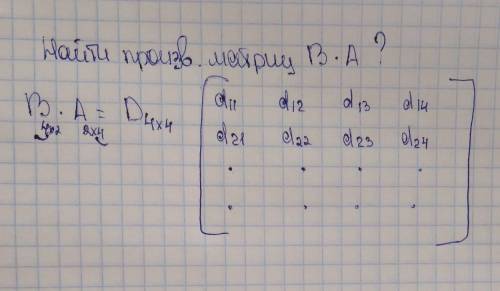 Найти произв. матриц B · A ?
B · A = D4x4
4x2 2x4
d11 d12 d13 d14
d21 d22 d23 d24
. . . .
. . . .